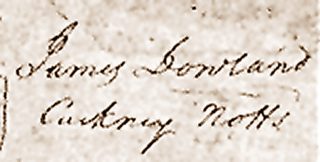 James Dowland
Cuckney Notts